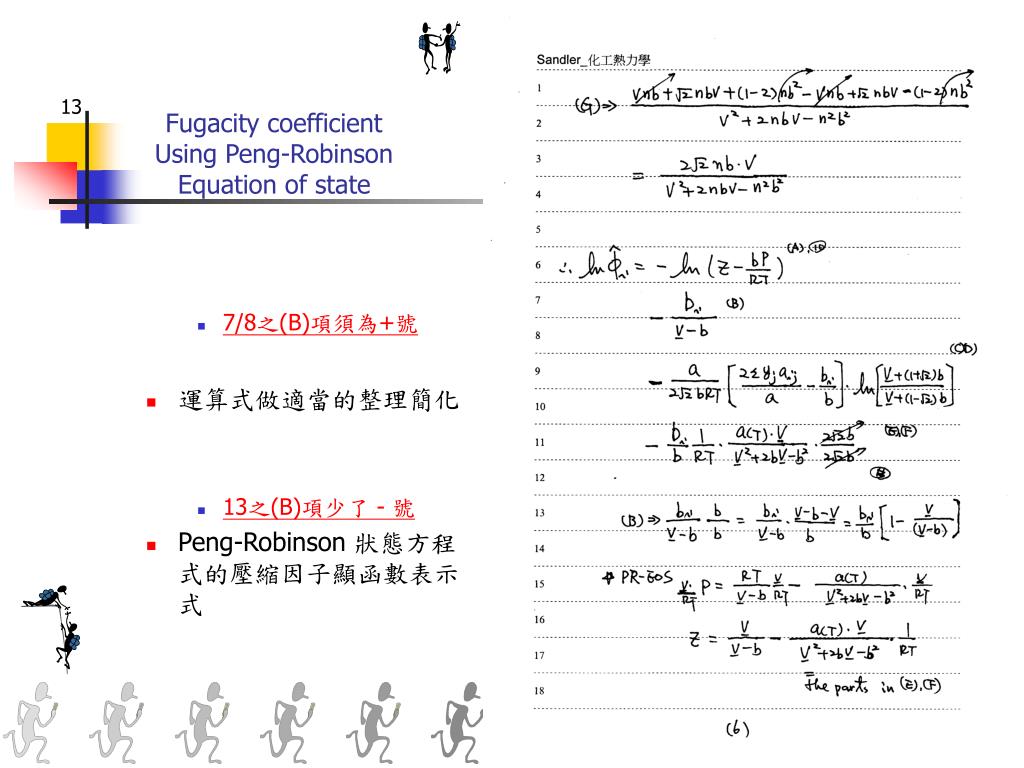 13
Fugacity coefficient
Using Peng-Robinson
Equation of state
7/8之(B)項須為+號
運算式做適當的整理簡化
13之(B)項少了 - 號
Peng-Robinson 狀態方程
式的壓縮因子顯函數表示
式
Sandler_化工熱力學
1
(G)⇒ (Vnb+√2 nbV+(1-2)nb²-Vnb+√2 nbV-(1-2)nb²) / (V²+2nbV-n²b²)
2
3
= (2√2 nb·V) / (V²+2nbV-n²b²)
4
5
6 ∴ ln φ̂ᵢ = -ln(Z - bP/RT) (A)
7
- bᵢ/(V-b) (B)
8
9
- a/(2√2 bRT) [2Σyⱼaᵢⱼ/a - bᵢ/b]·ln[(V+(1+√2)b)/(V+(1-√2)b)] (C)(D)
10
11 - bᵢ/b · 1/RT · a(T)·V/(V²+2bV-b²) · 2√2b/2√2b (E),(F)
12
13 (B)⇒ bᵢ/(V-b) · b/b = bᵢ/(V-b) · (V-b-V)/b = bᵢ/b [1 - V/(V-b)]
14
15 PR-EOS V/RT P = RT/(V-b) · V/RT - a(T)/(V²+2bV-b²) · V/RT
16
Z = V/(V-b) - a(T)·V/(V²+2bV-b²) · 1/RT
17
18 the parts in (E),(F)
(6)